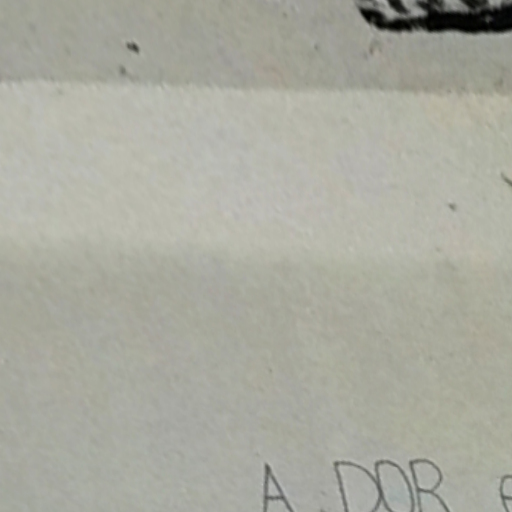 A DOR